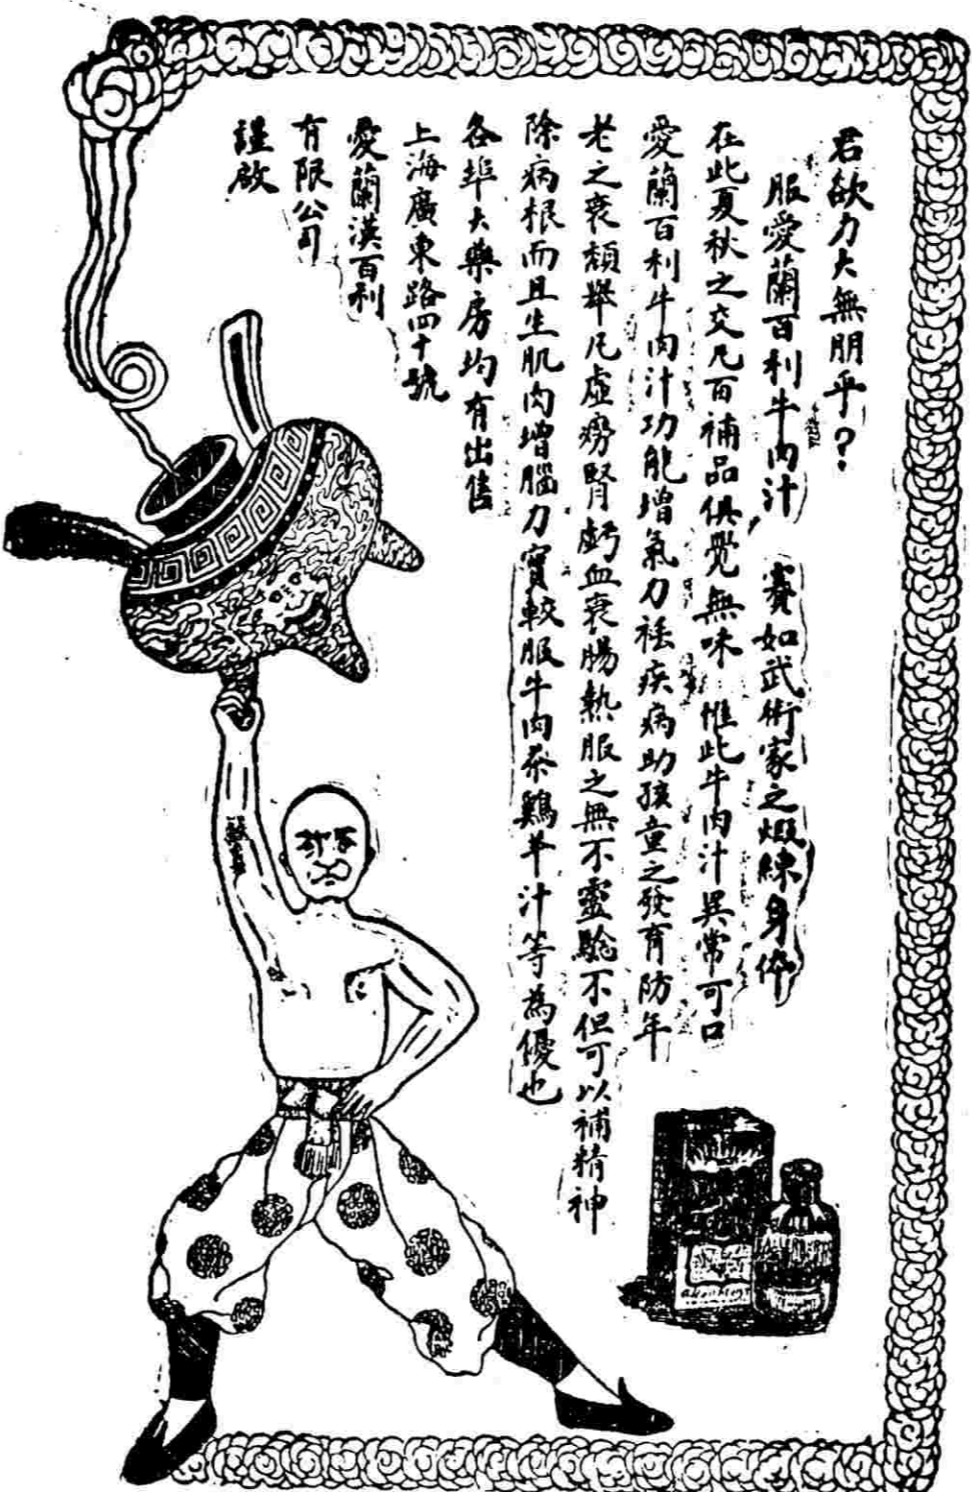 君欲力大無朋乎？
服愛蘭百利牛肉汁　賽如武術家之煅練身体
在此夏秋之交凡百補品俱覺無味　惟此牛肉汁異常可口
愛蘭百利牛肉汁功能增氣力祛疾病助孩童之發育防年
老之衰頹舉凡虛癆腎虧血衰腸熱服之無不靈驗不但可以補精神
除病根而且生肌肉增腦力實較服牛肉茶鷄羊汁等為優也
各埠大藥房均有出售
上海廣東路四十號
愛蘭漢百利
有限公司
謹啟